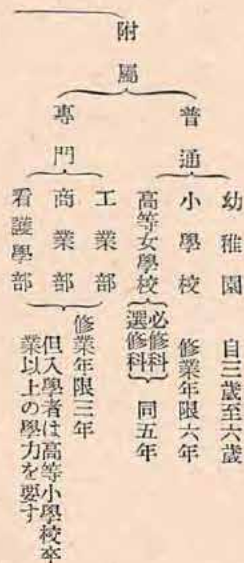 附屬
普通
幼稚園 自三歲至六歲
小學校 修業年限六年
高等女學校 必修科 選修科 同五年
專門
工業部
商業部
看護學部
修業年限三年
但入學者は高等小學校卒
業以上の學力を要す